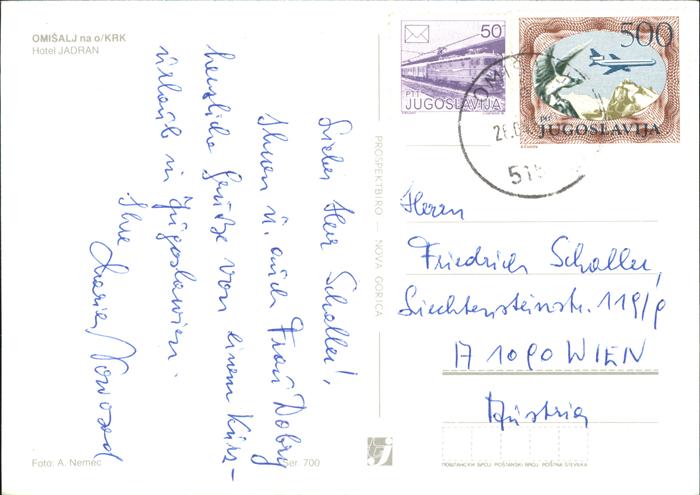 OMIŠALJ na o/KRK
Hotel JADRAN
Lieber Herr Schaller!,
Ihnen u. auch Frau Dobry
herzliche Grüße von einem Kurz-
urlaub in Jugoslawien.
Ihre Maria Nowosad
Foto: A. Nemec
Ser. 700
PROSPEKTBIRO — NOVA GORICA
50
PTT
JUGOSLAVIJA
500
PTT
JUGOSLAVIJA
OMIŠ
26.0
515
Herrn
Friedrich Schaller,
Liechtensteinstr. 119/9
A 1090 WIEN
Austria
ПОШТАНСКИ БРОЈ POŠTANSKI BROJ POŠTNA ŠTEVILKA